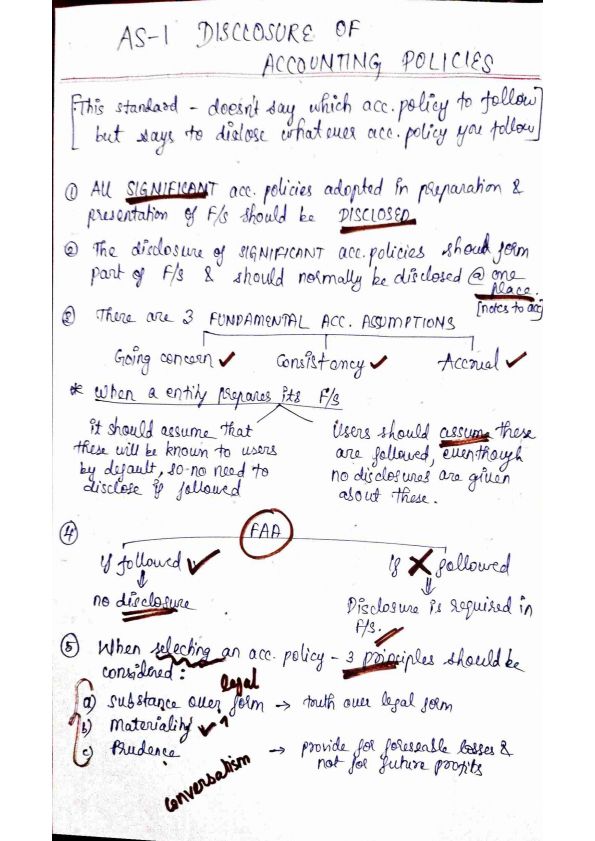 AS-1 DISCLOSURE OF
ACCOUNTING POLICIES
[This standard - doesn't say which acc. policy to follow]
[but says to dislose whatever acc. policy you follow]
① All SIGNIFICANT acc. policies adopted in preparation &
presentation of F/s should be DISCLOSED
② The disclosure of SIGNIFICANT acc. policies should form
part of F/s & should normally be disclosed @ one
place.
[notes to acc]
③ There are 3 FUNDAMENTAL ACC. ASSUMPTIONS
Going concern ✓ Consistancy ✓ Accrual ✓
* When a entity prepares its F/s
it should assume that
these will be known to users
by default, so no need to
disclose if followed
Users should assume these
are followed, eventhough
no disclosures are given
about these.
④ FAA
If followed ✓ If ✗ followed
↓ ⇓
no disclosure
Disclosure is required in
F/s.
⑤ When selecting an acc. policy - 3 principles should be
considered:
legal
a) Substance over form → truth over legal form
b) Materiality ✓
c) Prudence → provide for foreseable losses &
not for future profits
Conversalism